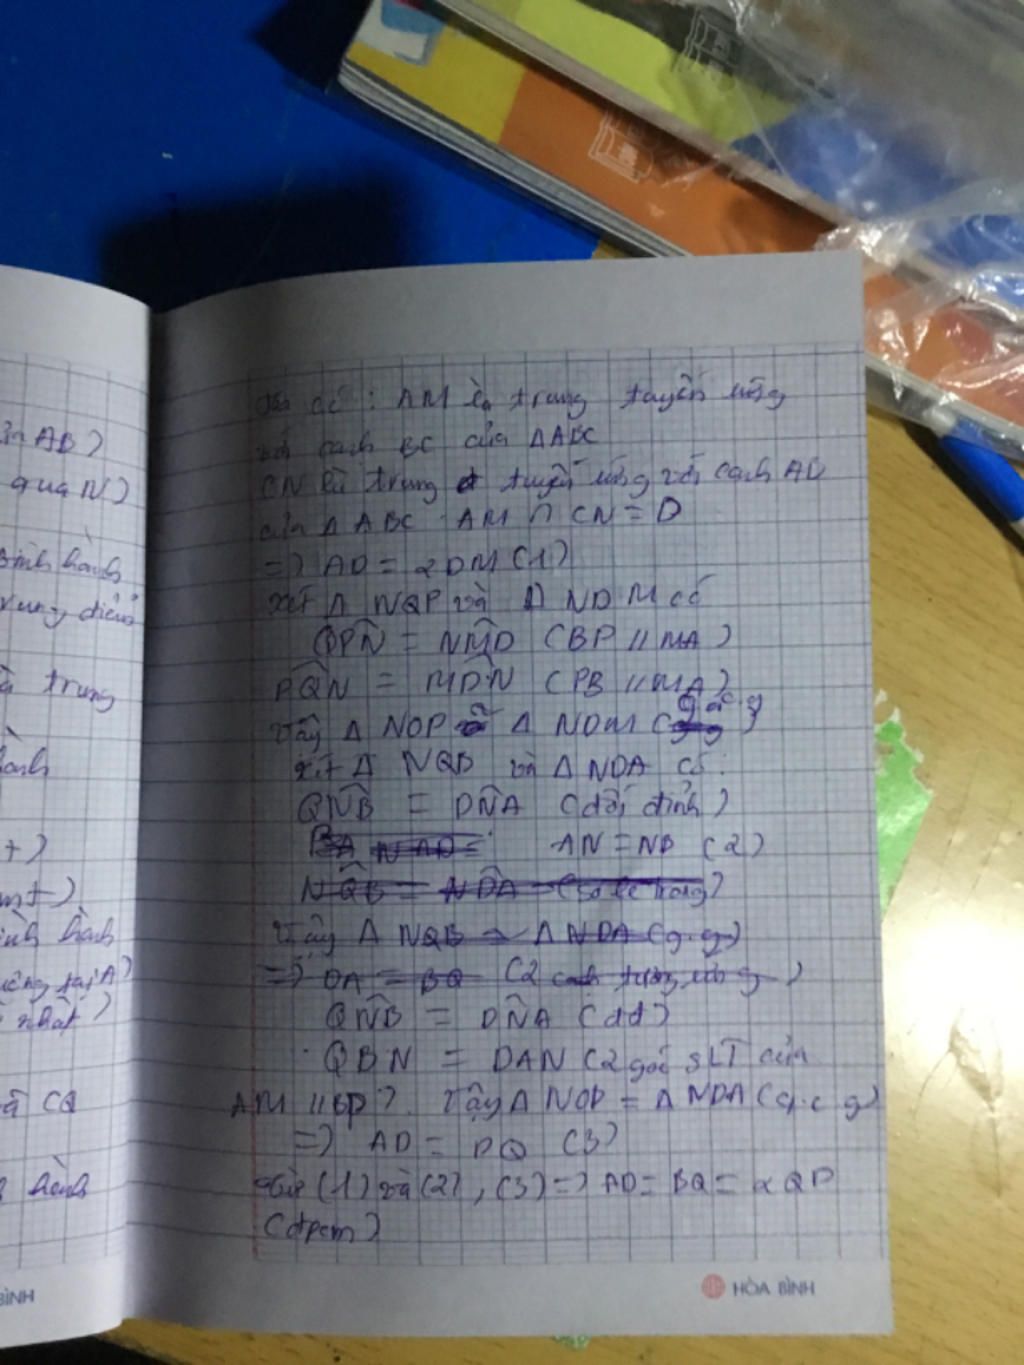 AB)
qua N)
bình hành
trung điểm
trung
hành
+)
hành
tại A)
nhất)
CQ
hình
BÌNH
có : AM là trung tuyến ứng
với cạnh BC của ΔABC
CN là trung tuyến ứng với cạnh AB
của Δ ABC AM ∩ CN = D
=) AD = 2DM (1)
xét Δ NQP và Δ NDM có
QPN = NMD (BP // MA)
PQN = MDN (PB // MA)
Vậy Δ NQP Δ NDM (g.c.g)
xét Δ NQB và Δ NDA có :
QNB = DNA (đối đỉnh)
AN = NB (2)
NQB = NDA (so le trong)
Vậy Δ NQB ~ Δ NDA (g.g)
=) DA = BQ (2 cạnh tương ứng)
QNB = DNA (đđ)
QBN = DAN (2 góc SLT của
AM // BP). Vậy Δ NQB = Δ NDA (g.c.g)
=) AD = BQ (3)
Từ (1) và (2), (3) =) AD = BQ = 2QP
(đpcm)
HÒA BÌNH